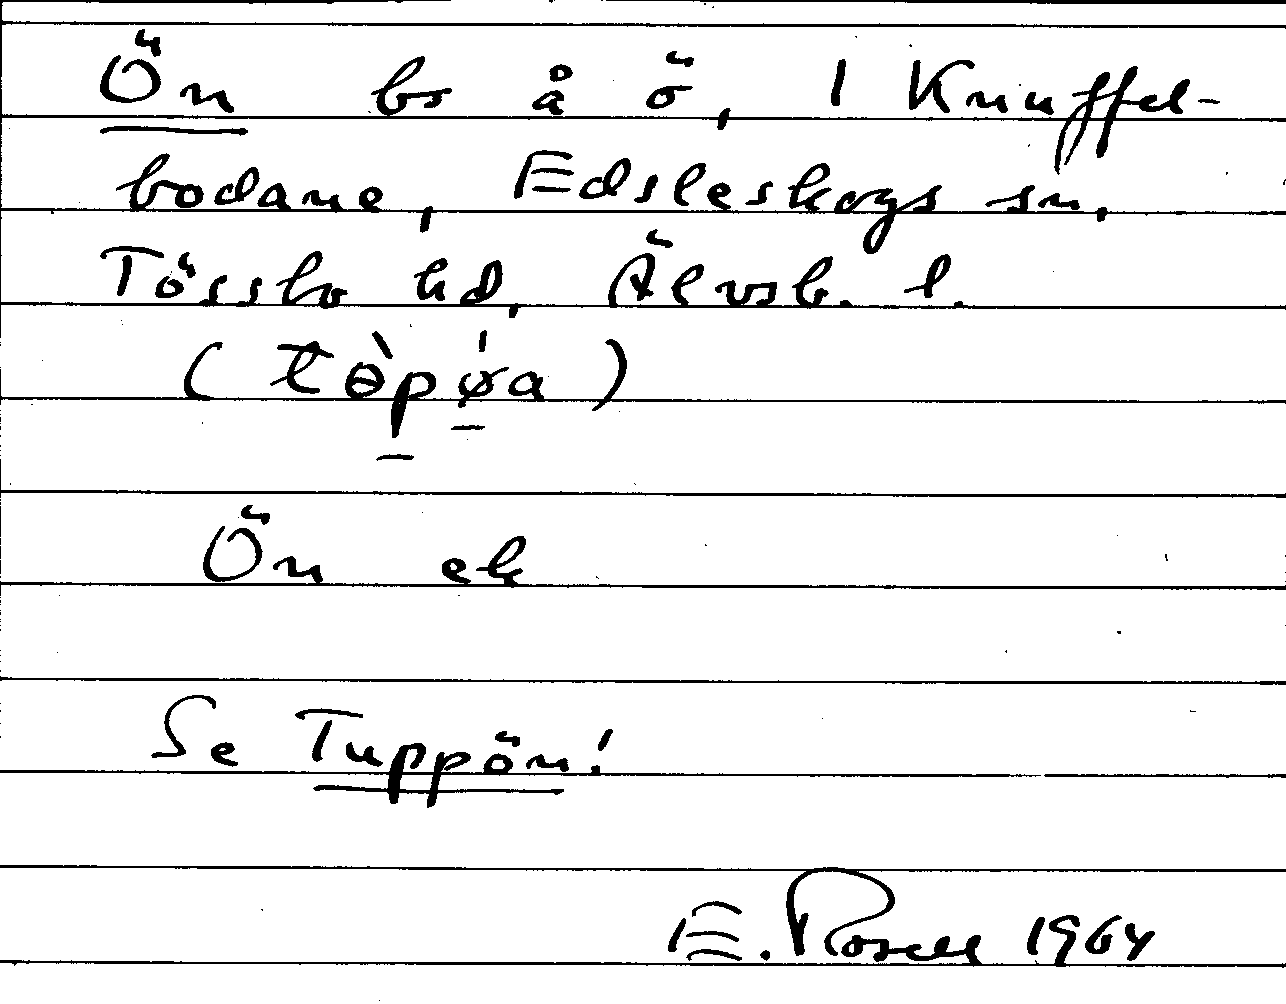 Ön bs å ö, 1 Knuffel-
bodane, Edsleskogs sn,
Tössbo hd, Älvsb. l.
(tɵ̀pǿ̣a)
Ön ek
Se Tuppön!
E. Rosell 1964